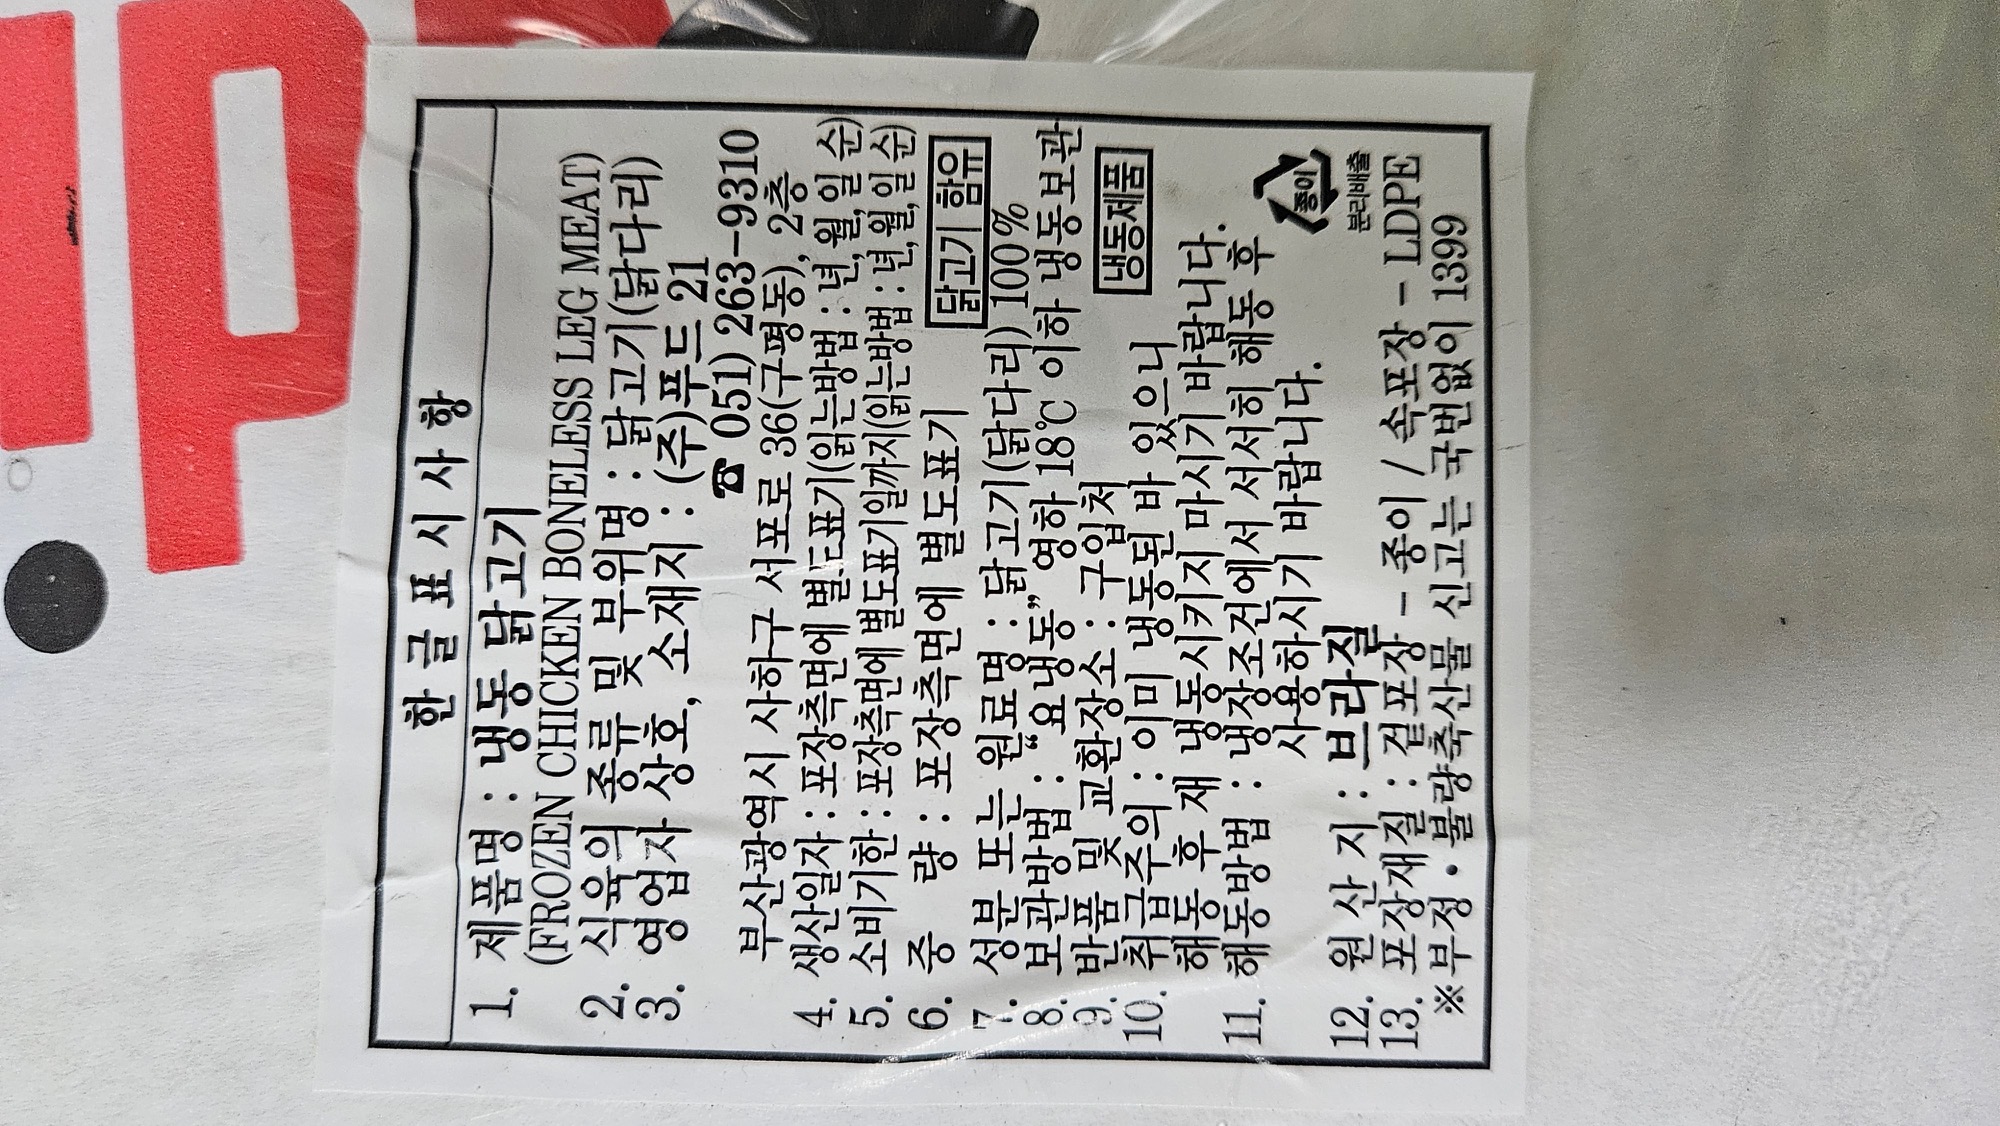 한 글 표 시 사 항
1. 제품명 : 냉동 닭고기
(FROZEN CHICKEN BONELESS LEG MEAT)
2. 식육의 종류 및 부위명 : 닭고기(닭다리)
3. 영업자 상호, 소재지 : (주)푸드 21
☎ 051) 263-9310
부산광역시 사하구 서포로 36(구평동), 2층
4. 생산일자 : 포장측면에 별도표기(읽는방법 : 년,월,일 순)
5. 소비기한 : 포장측면에 별도표기일까지(읽는방법 : 년,월,일 순)
6. 중 량 : 포장측면에 별도표기
닭고기 함유
7. 성분 또는 원료명 : 닭고기(닭다리) 100%
8. 보관방법 : “요냉동” 영하 18℃ 이하 냉동보관
9. 반품 및 교환장소 : 구입처
냉동제품
10. 취급주의 : 이미 냉동된 바 있으니
해동 후 재 냉동시키지 마시기 바랍니다.
11. 해동방법 : 냉장조건에서 서서히 해동 후
사용하시기 바랍니다.
종이
분리배출
12. 원 산 지 : 브라질
13. 포장재질 : 겉포장 - 종이 / 속포장 - LDPE
※부정·불량축산물 신고는 국번없이 1399